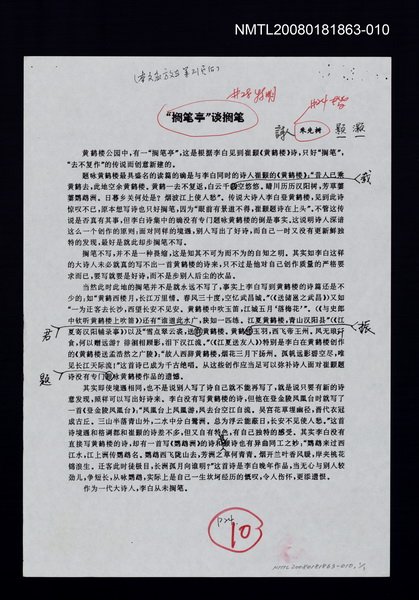 NMTL20080181863-010
#28 特明
#24 一号
“搁笔亭”谈搁笔
诗人 朱先树
颢 灏
黄鹤楼公园中，有一“搁笔亭”，这是根据李白见到崔颢《黄鹤楼》诗，只好“搁笔”，
“去不复作”的传说而创意新建的。
题咏黄鹤楼最具盛名的诗篇的确是与李白同时的诗人崔颢的《黄鹤楼》。“昔人已乘
黄鹤去，此地空余黄鹤楼。黄鹤一去不复返，白云千载空悠悠。晴川历历汉阳树，芳草萋
萋鹦鹉洲。日暮乡关何处是？烟波江上使人愁”。传说大诗人李白登黄鹤楼，见到此诗
惊叹不已，原本想写诗也只好搁笔，因为“眼前有景道不得，崔颢题诗在上头”。不管这传
说是否真有其事，但李白诗集中的确没有专门题咏黄鹤楼的倒是事实。这说明诗人深谙
这么一个创作的原则；面对同样的境遇，别人写出了好诗，而自己一时又没有更新鲜独
特的发现，最好是就此却步搁笔不写。
搁笔不写，并不是一种畏缩，这是知其不可为而不为的自知之明。其实如李白这样
的大诗人未必就真的写不出一首黄鹤楼的诗来，只不过是他对自己创作质量的严格要
求而已，要写就要是好诗，而不是步别人后尘的次品。
当然此时此地的搁笔并不是就永远不写了，事实上李白写到黄鹤楼的诗篇还是不
少的，如“黄鹤西楼月，长江万里情。春风三十度，空忆武昌城。”（《送储邕之武昌》）又如
“一为迁客去长沙，西望长安不见家。黄鹤楼中吹玉笛，江城五月‘落梅花’”。（《与史郎
中钦听黄鹤楼上吹笛》）还有“谁道此水广，狭如一匹练。江夏黄鹤楼，青山汉阳县”（《江
夏寄汉阳辅录事》）以及“雪点翠云裘，送君黄鹤楼，黄鹤振玉羽，西飞帝王州。凤无琅玕
食，何以赠远游？徘徊相顾影，泪下汉江流。”（《江夏送友人》）特别是李白在黄鹤楼创作
的《黄鹤楼送孟浩然之广陵》，“故人西辞黄鹤楼，烟花三月下扬州。孤帆远影碧空尽，唯
见长江天际流”这首诗已成为千古绝唱。从这些创作应当足可以弥补诗人面对崔颢题
诗没有专门题咏黄鹤楼作品的遗憾。
其实即使境遇相同，也不是说别人写了诗自己就不能再写了，就是说只要有新的诗
意发现，照样可以写出好诗来。李白没有写黄鹤楼的诗，但他在登金陵凤凰台时就写了
一首《登金陵凤凰台》，“凤凰台上凤凰游，凤去台空江自流。吴宫花草埋幽径，晋代衣冠
成古丘。三山半落青山外，二水中分白鹭洲。总为浮云能蔽日，长安不见使人愁。”这首
诗境遇和格调都和崔颢的诗差不多，但又自有特色，有自己独特的感受。其实李白没有
直接写黄鹤楼的诗，却有一首写《鹦鹉洲》的诗和崔诗也有异曲同工之妙，“鹦鹉来过西
江水，江上洲传鹦鹉名。鹦鹉西飞陇山去，芳洲之草何青青。烟开兰叶香风暖，岸夹桃花
锦浪生。迁客此时徒极目，长洲孤月向谁明？”这首诗是李白晚年作品，当无心与别人较
劲儿，争短长，从咏鹦鹉，实际上是自己一生坎坷经历的慨叹，令人伤怀，更添遗恨。
作为一代大诗人，李白从未搁笔。
载
君
振
题
P24
10
NMTL20080181863-010, 1/1